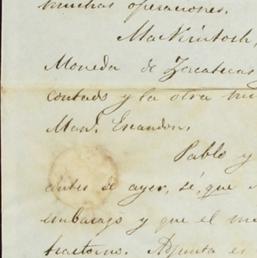 muchas operaciones.
MacKintosh,
Moneda de Zacatecas
contado y la otra
Man! Escandon.
Pablo y
antes de ayer, sé, que
embarago y que el
trastorno. Ajunta es